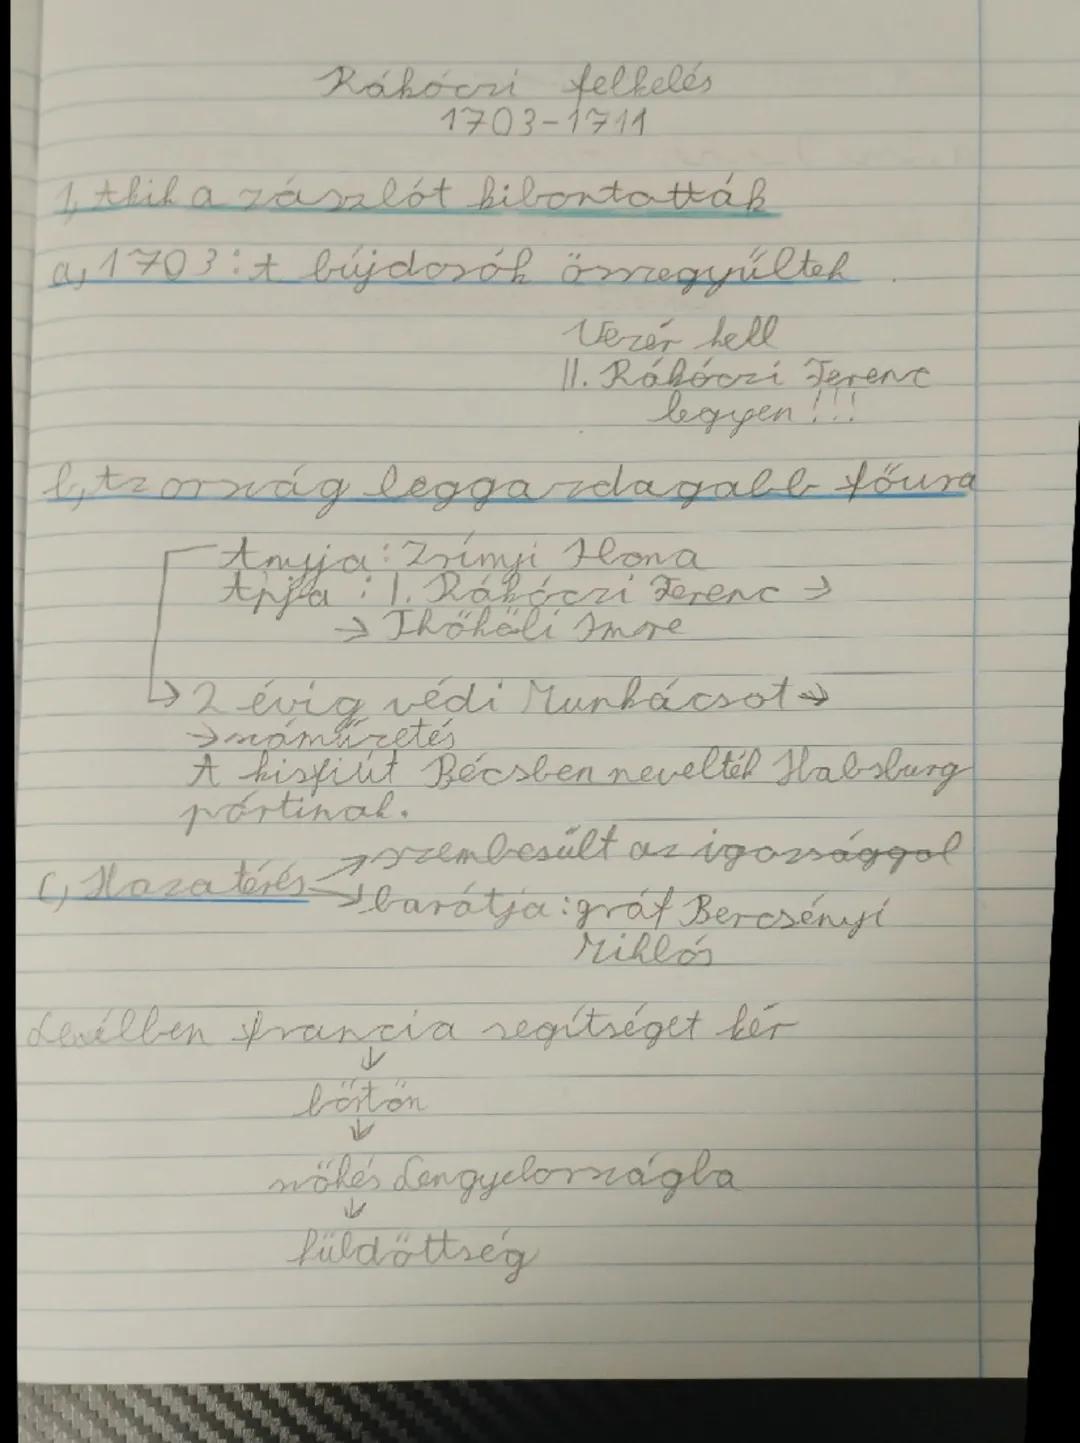 Rákóczi felkelés
1703-1711
1, Akik a zászlót kibontották
a, 1703: A bújdosók összegyűltek
Vezér kell
II. Rákóczi Ferenc
legyen!!!
b, Az ország leggazdagabb főura
Anyja: Zrínyi Ilona
Apja: I. Rákóczi Ferenc →
→ Thököli Imre
→ 2 évig védi Munkácsot →
→ száműzetés
A kisfiút Bécsben nevelték Habsburg
pártinak.
C, Hazatérés → szembesűlt az igazsággal
→ barátja: gráf Bercsényi
Miklós
Levélben francia segítséget kér
↓
börtön
↓
szökés Lengyelországba
↓
küldöttség